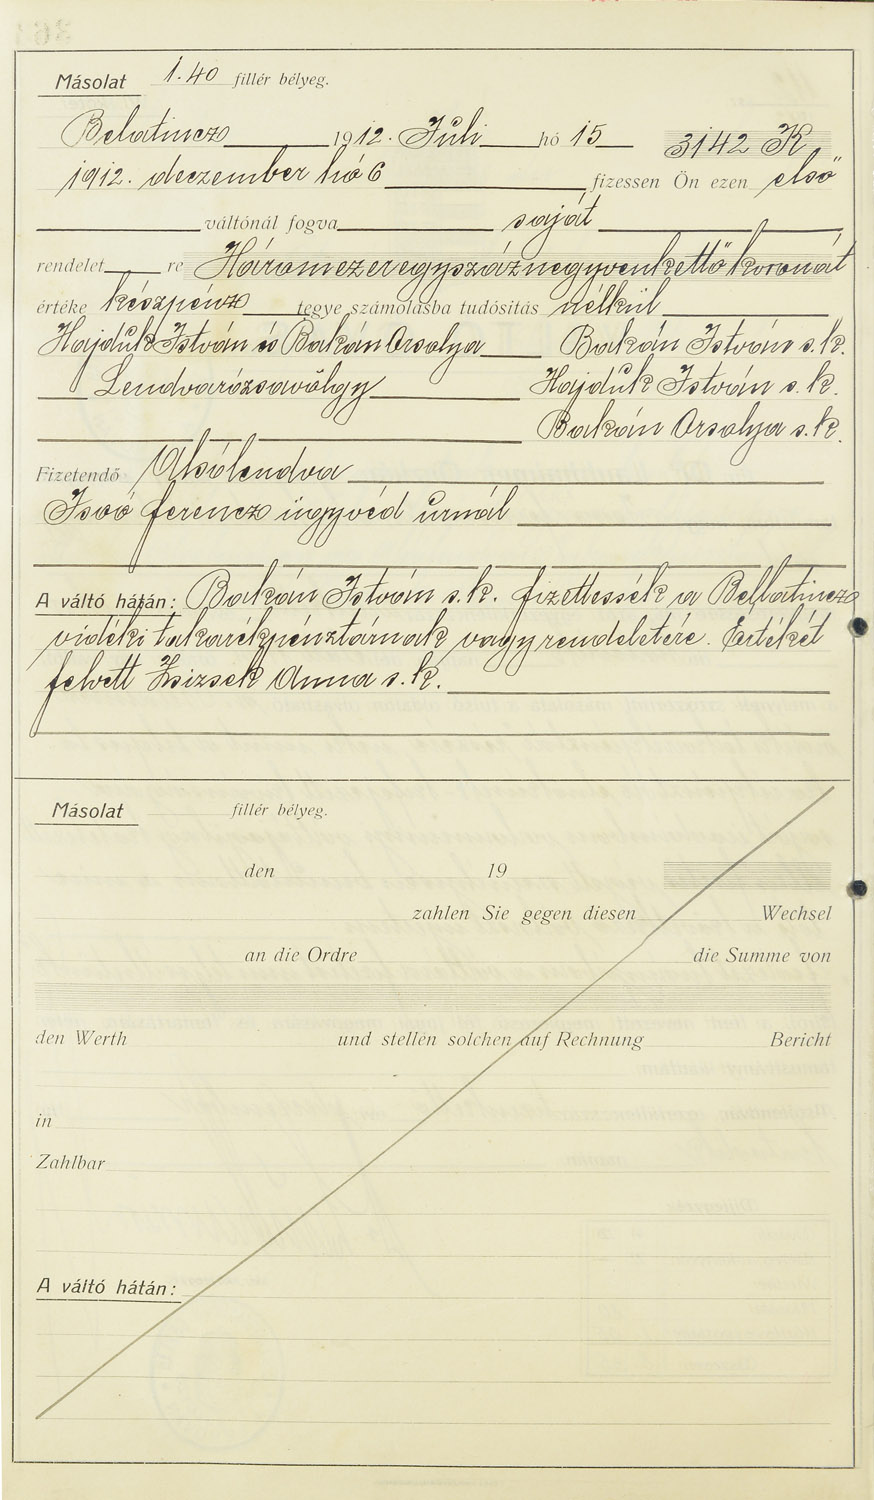 Másolat 1.40 fillér bélyeg.
Belatincz 1912. Juli hó 15 3142 K
1912. deczember hó 6 fizessen Ön ezen első
váltónál fogva saját
rendelet re Háromezeregyszáznegyvenkettő koronát
értéke készpénz tegye számolásba tudósitás nélkül
Hajdúk István és Bakán Orsolya Bakán István s.k.
Lendvarózsavölgy Hajdúk István s.k.
Bakán Orsolya s.k.
Fizetendő Alsólendva
Isoó ferencz ügyvéd úrnál
A váltó hátán: Bakán István s.k. fizettessék a Bellatincz
vidéki takarékpénztárnak vagy rendeletére. Értékét
felvett Zsizsek Anna s.k.
Másolat fillér bélyeg.
den 19
zahlen Sie gegen diesen Wechsel
an die Ordre die Summe von
den Werth und stellen solchen auf Rechnung Bericht
in
Zahlbar
A váltó hátán: